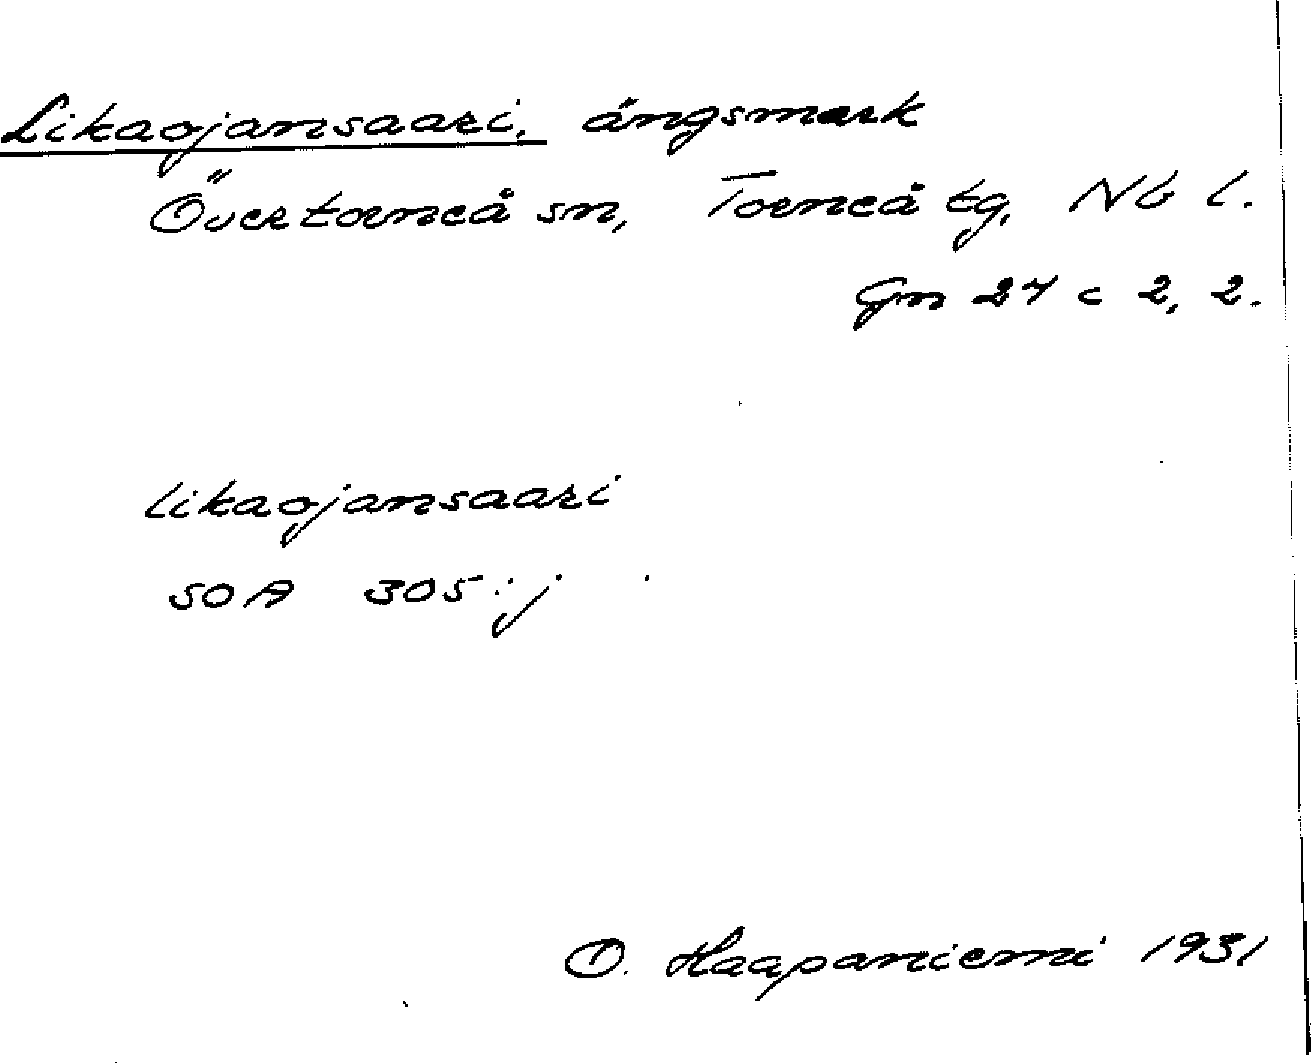 Likaojansaari, ängsmark
Övertorneå sn, Torneå tg, Nb l.
Gn 27 c 2, 2.
likaojansaari
SOA 305:j
O. Haapaniemi 1931